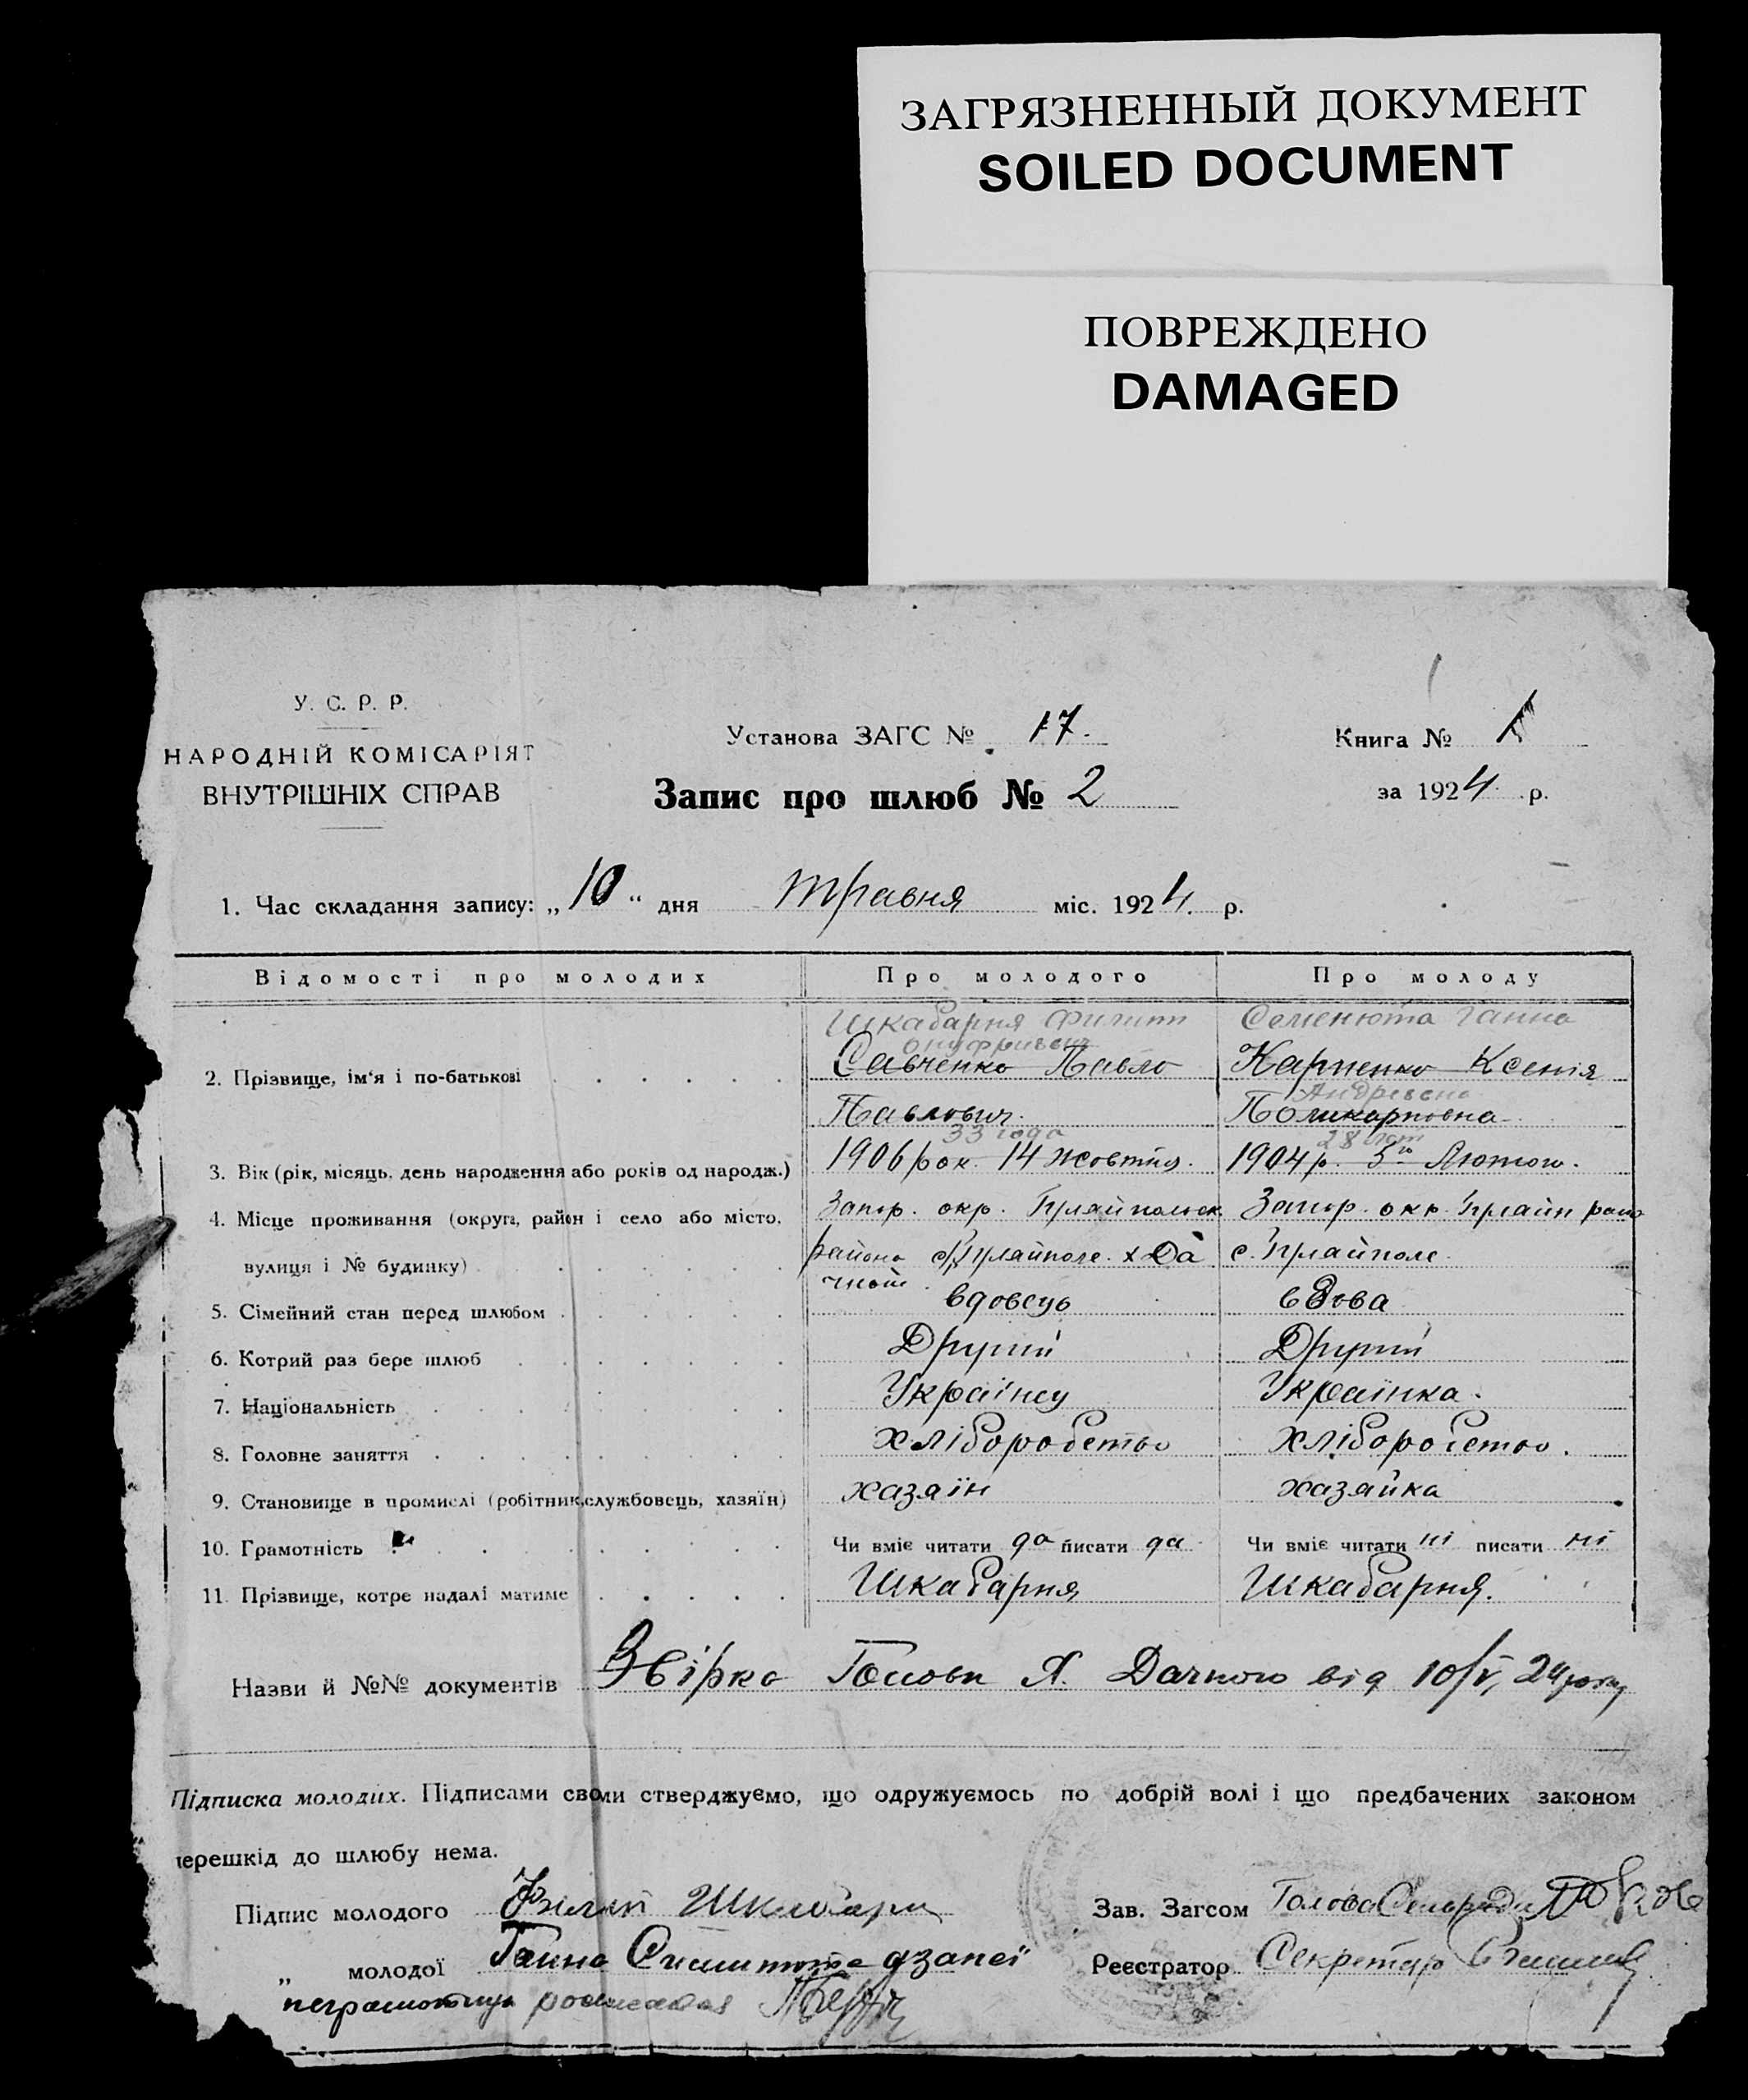 ЗАГРЯЗНЕННЫЙ ДОКУМЕНТ
SOILED DOCUMENT
ПОВРЕЖДЕНО
DAMAGED
У. С. Р. Р.
НАРОДНІЙ КОМІСАРІЯТ
ВНУТРІШНІХ СПРАВ
Установа ЗАГС № 17.
Запис про шлюб № 2
Книга № 1
за 1924 р.
1. Час складання запису: „10“ дня травня міс. 1924. р.
Відомості про молодих Про молодого Про молоду
Шкабарня Филипп Семенюта Ганна
Онуфриевич
2. Прізвище, ім'я і по-батькові Савченко Павло Карпенко Ксенія
Андреевна
Павлович. Поликарповна
33 года 28 лет
3. Вік (рік, місяць, день народження або років од народж.) 1906 рок 14 жовтня. 1904 р. 5го Лютого.
4. Місце проживання (округа, район і село або місто, Запор. окр. Гуляйпольск Запор. окр. Гуляйп район
вулиця і № будинку) района с. Гуляйполе х Да с. Гуляйполе
чной
5. Сімейний стан перед шлюбом вдовець вдова
6. Котрий раз бере шлюб Другий Другий
7. Національність Українец Українка.
8. Головне заняття хліборобство хліборобство.
9. Становище в промислі (робітник, службовець, хазяїн) хазяїн хазяйка
10. Грамотність Чи вміє читати да писати да Чи вміє читати ні писати ні
11. Прізвище, котре надалі матиме Шкабарня Шкабарня.
Назви й №№ документів Звірка Голови Х. Дачного від 10/V, 24 року
Підписка молодих. Підписами своїми стверджуємо, що одружуємось по добрій волі і що предбачених законом
перешкід до шлюбу нема.
Підпис молодого Филип Шкабарня Зав. Загсом Голова Сельради
„ молодої Ганна Семенюта а за неї Реєстратор Секретар
неграмотну росписался